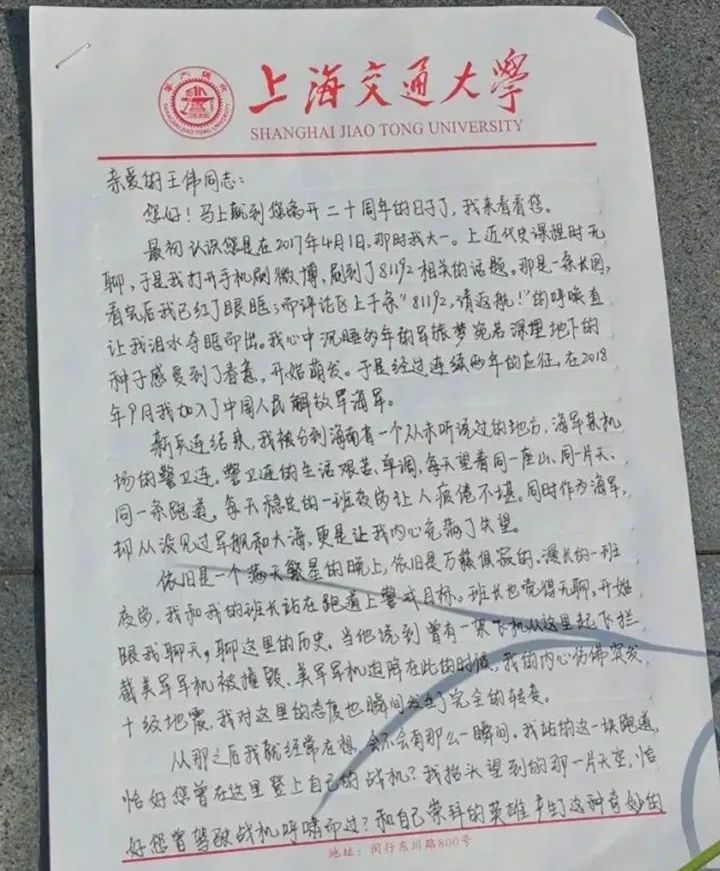 上海交通大學
SHANGHAI JIAO TONG UNIVERSITY
亲爱的王伟同志：
您好！马上就到您离开二十周年的日子了，我来看看您。
最初认识您是在2017年4月1日，那时我大一。上近代史课程时无
聊，于是我打开手机刷微博，刷到了81192相关的话题。那是一条长图，
看完后我已红了眼眶；而评论区上千条“81192，请返航！”的呼唤直
让我泪水夺眶而出。我心中沉睡多年的军旅梦宛若深埋地下的
种子感受到了春意，开始萌发。于是经过连续两年的应征，在2018
年9月我加入了中国人民解放军海军。
新兵连结束，我被分到海南省一个从未听说过的地方，海军某机
场的警卫连。警卫连的生活艰苦、单调，每天望着同一座山、同一片天、
同一条跑道，每天稳定的一班夜岗让人疲倦不堪。同时作为海军，
却从没见过军舰和大海，更是让我内心充满了失望。
依旧是一个满天繁星的晚上，依旧是万籁俱寂的、漫长的一班
夜岗，我和我的班长站在跑道上警戒目标。班长也觉得无聊，开始
跟我聊天，聊这里的历史。当他说到曾有一架飞机从这里起飞拦
截美军军机被撞毁、美军军机迫降在此的时候，我的内心仿佛突发
十级地震，我对这里的态度也瞬间发生了完全的转变。
从那之后我就经常在想，会不会有那么一瞬间，我站的这一块跑道，
恰好您曾在这里登上自己的战机？我抬头望到的那一片天空，恰
好您曾驾驶战机呼啸而过？和自己崇拜的英雄产生这种奇妙的
地址：闵行东川路800号